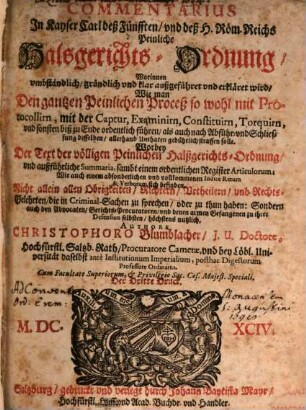 COMMENTARIUS
In Kayser Carl deß Fünfften/ und deß H. Röm. Reichs
Peinliche
Halsgerichts-Ordnung/
Worinnen
umbständlich/ gründlich und klar außgeführet und erkläret wird/
Wie man
Den gantzen Peinlichen Proceß so wohl mit Pro-
tocollirn, mit der Captur, Examinirn, Constituirn, Torquirn,
und sonsten biß zu Ende ordentlich führen/ als auch nach Abführ- und Schlies-
sung desselben/ allerhand Unthaten gebührlich straffen solle.
Worbey
Der Text der völligen Peinlichen Halßgerichts-Ordnung/
und außführliche Summaria, sambt einem ordentlichen Register Articulorum:
Wie auch einem absonderlichen und vollkommnen Indice Rerum
& Verborum, sich befinden.
Nicht allein allen Obrigkeiten/ Richtern/ Urtheilern/ und Rechts-
Gelehrten/ die in Criminal-Sachen zu sprechen/ oder zu thun haben: Sondern
auch den Advocaten/ Gerichts-Procuratoren/ und denen armen Gefangenen zu ihrer
Defension selbsten/ höchstens nutzlich.
Authore
CHRISTOPHORO Blumblacher/ J. U. Doctore,
Hochfürstl. Saltzb. Rath/ Procuratore Cameræ, und bey Löbl. Uni-
versität daselbst antè Institutionum Imperialium, posthac Digestorum
Professore Ordinario.
Cum Facultate Superiorum, & Privilegio Sac. Cæs. Majest. Speciali.
Der Dritte Druck.
M. DC. XCIV.
Saltzburg/ gedruckt und verlegt durch Johann Baptista Mayr/
Hochfürstl. Hoff- und Acad. Buchdr. und Handler.